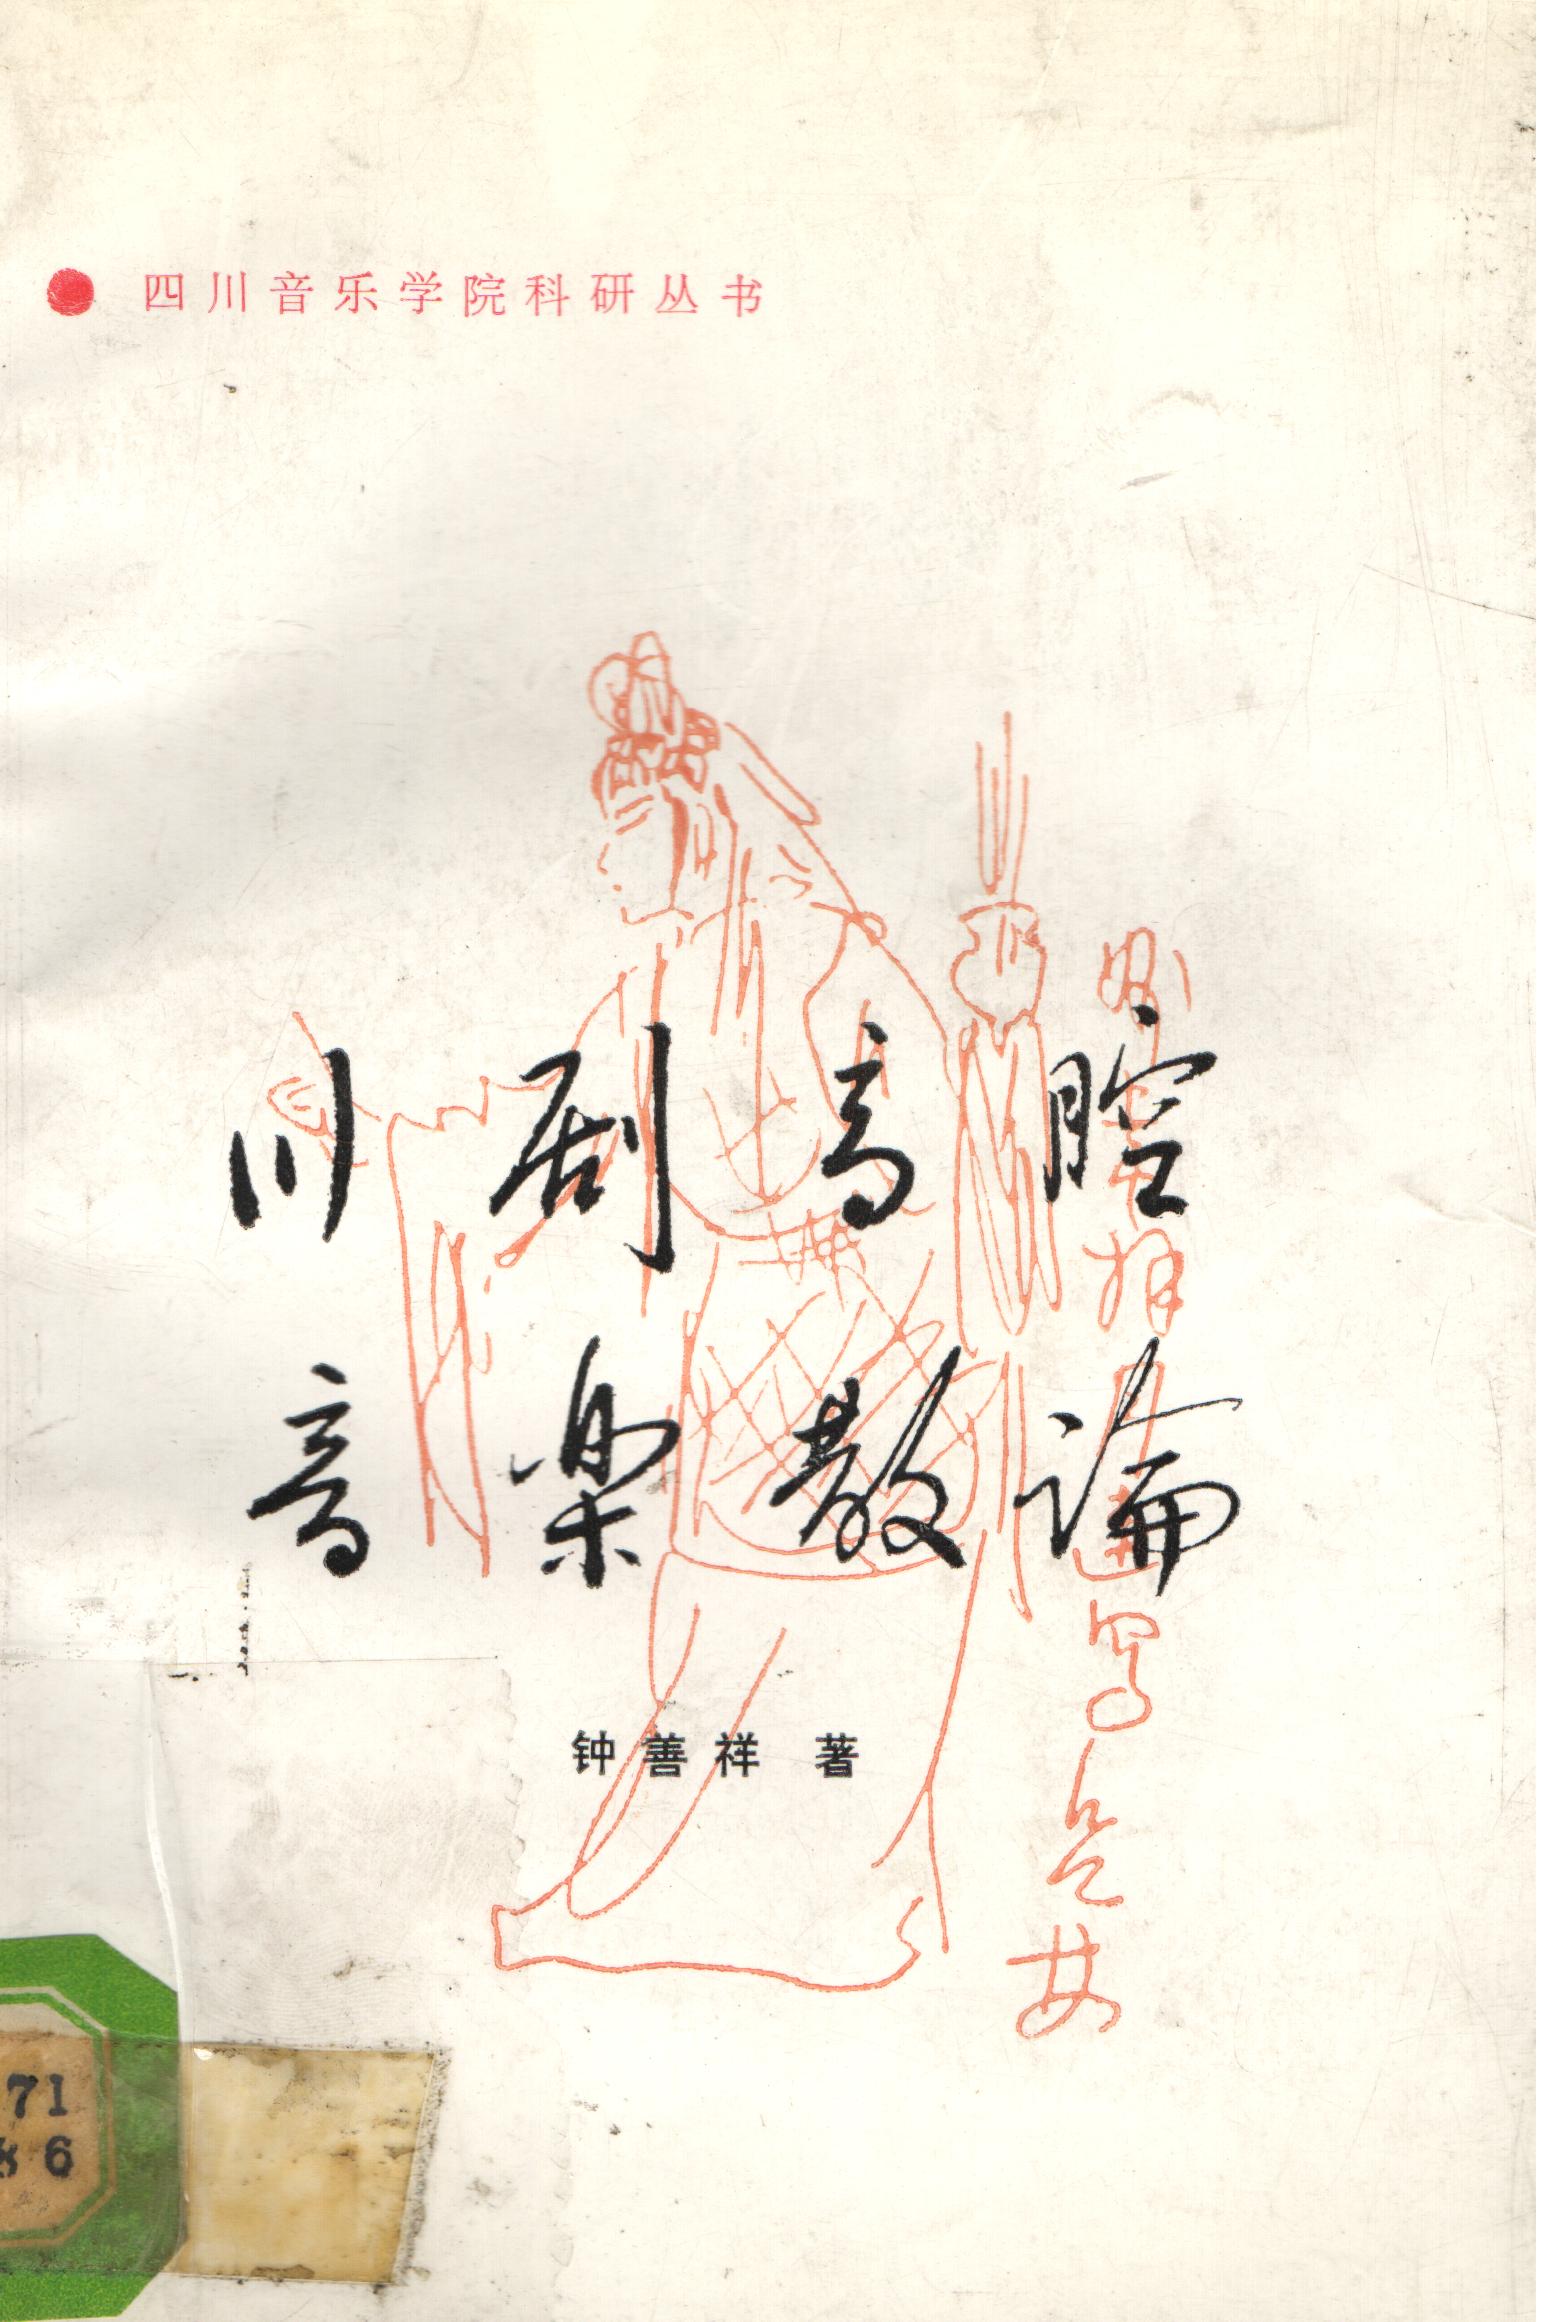 四川音乐学院科研丛书
川剧高腔
音楽散論
钟善祥 著
71
86